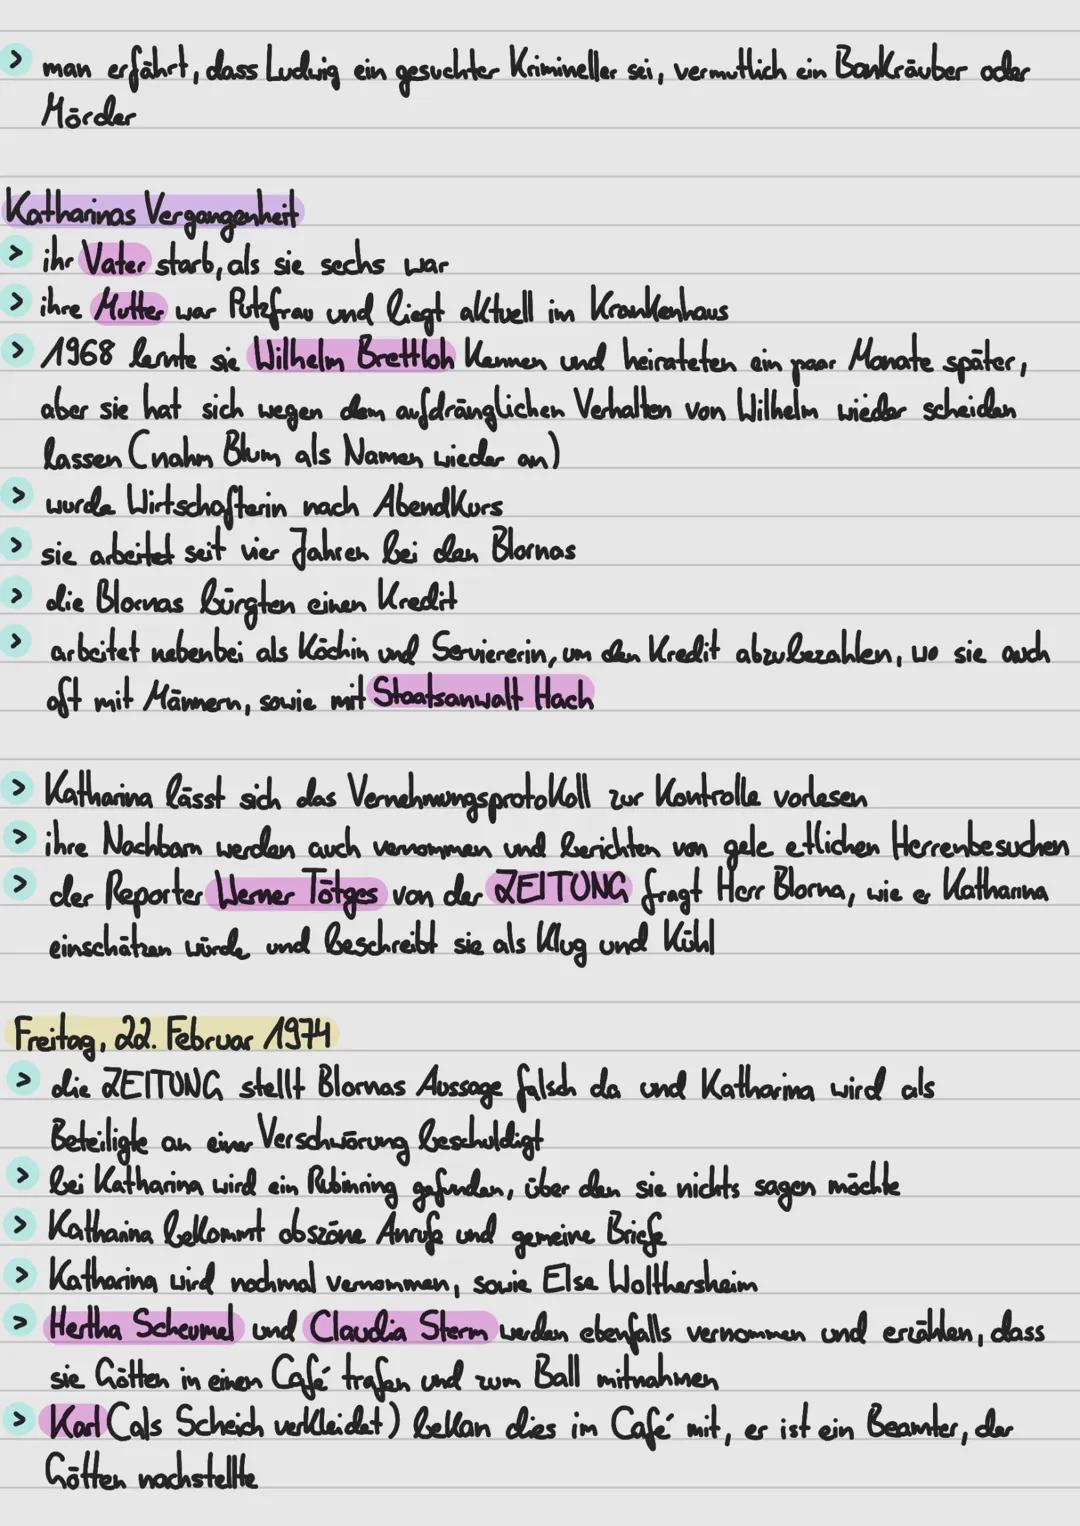 > man erfährt, dass Ludwig ein gesuchter Krimineller sei, vermutlich ein Bankräuber oder
Mörder
Katharinas Vergangenheit
> ihr Vater starb, als sie sechs war
> ihre Mutter war Putzfrau und liegt aktuell im Krankenhaus
> 1968 lernte sie Wilhelm Brettloh kennen und heirateten ein paar Monate später,
aber sie hat sich wegen dem aufdränglichen Verhalten von Wilhelm wieder scheiden
lassen (nahm Blum als Namen wieder an)
> wurde Wirtschafterin nach Abendkurs
> sie arbeitet seit vier Jahren bei den Blornas
> die Blornas bürgten einen Kredit
> arbeitet nebenbei als Köchin und Serviererin, um den Kredit abzubezahlen, wo sie auch
oft mit Männern, sowie mit Staatsanwalt Hach
> Katharina lässt sich das Vernehmungsprotokoll zur Kontrolle vorlesen
> ihre Nachbarn werden auch vernommen und berichten von gele etlichen Herrenbesuchen
> der Reporter Werner Tötges von der ZEITUNG fragt Herr Blorna, wie er Katharina
einschätzen würde und beschreibt sie als klug und kühl
Freitag, 22. Februar 1974
> die ZEITUNG stellt Blornas Aussage falsch da und Katharina wird als
Beteiligte an einer Verschwörung beschuldigt
> bei Katharina wird ein Rubinring gefunden, über den sie nichts sagen möchte
> Katharina bekommt obszöne Anrufe und gemeine Briefe
> Katharina wird nochmal vernommen, sowie Else Wolthersheim
> Hertha Scheumel und Claudia Sterm werden ebenfalls vernommen und erzählen, dass
sie Götten in einen Café trafen und zum Ball mitnahmen
> Karl (als Scheich verkleidet) bekam dies im Café mit, er ist ein Beamter, der
Götten nachstellte